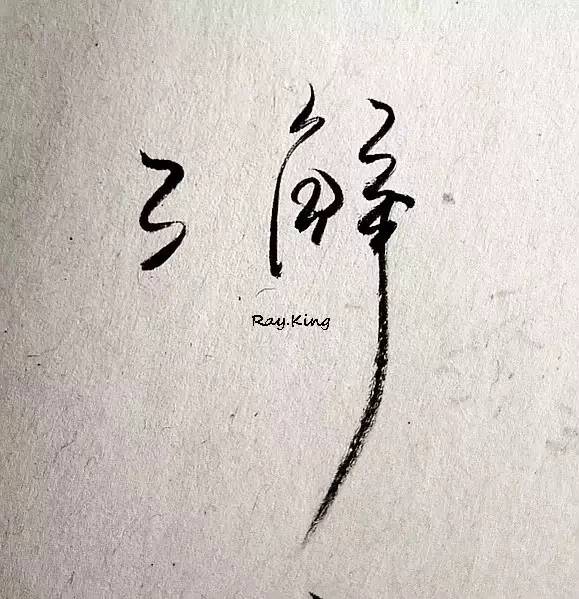 了解
Ray.King